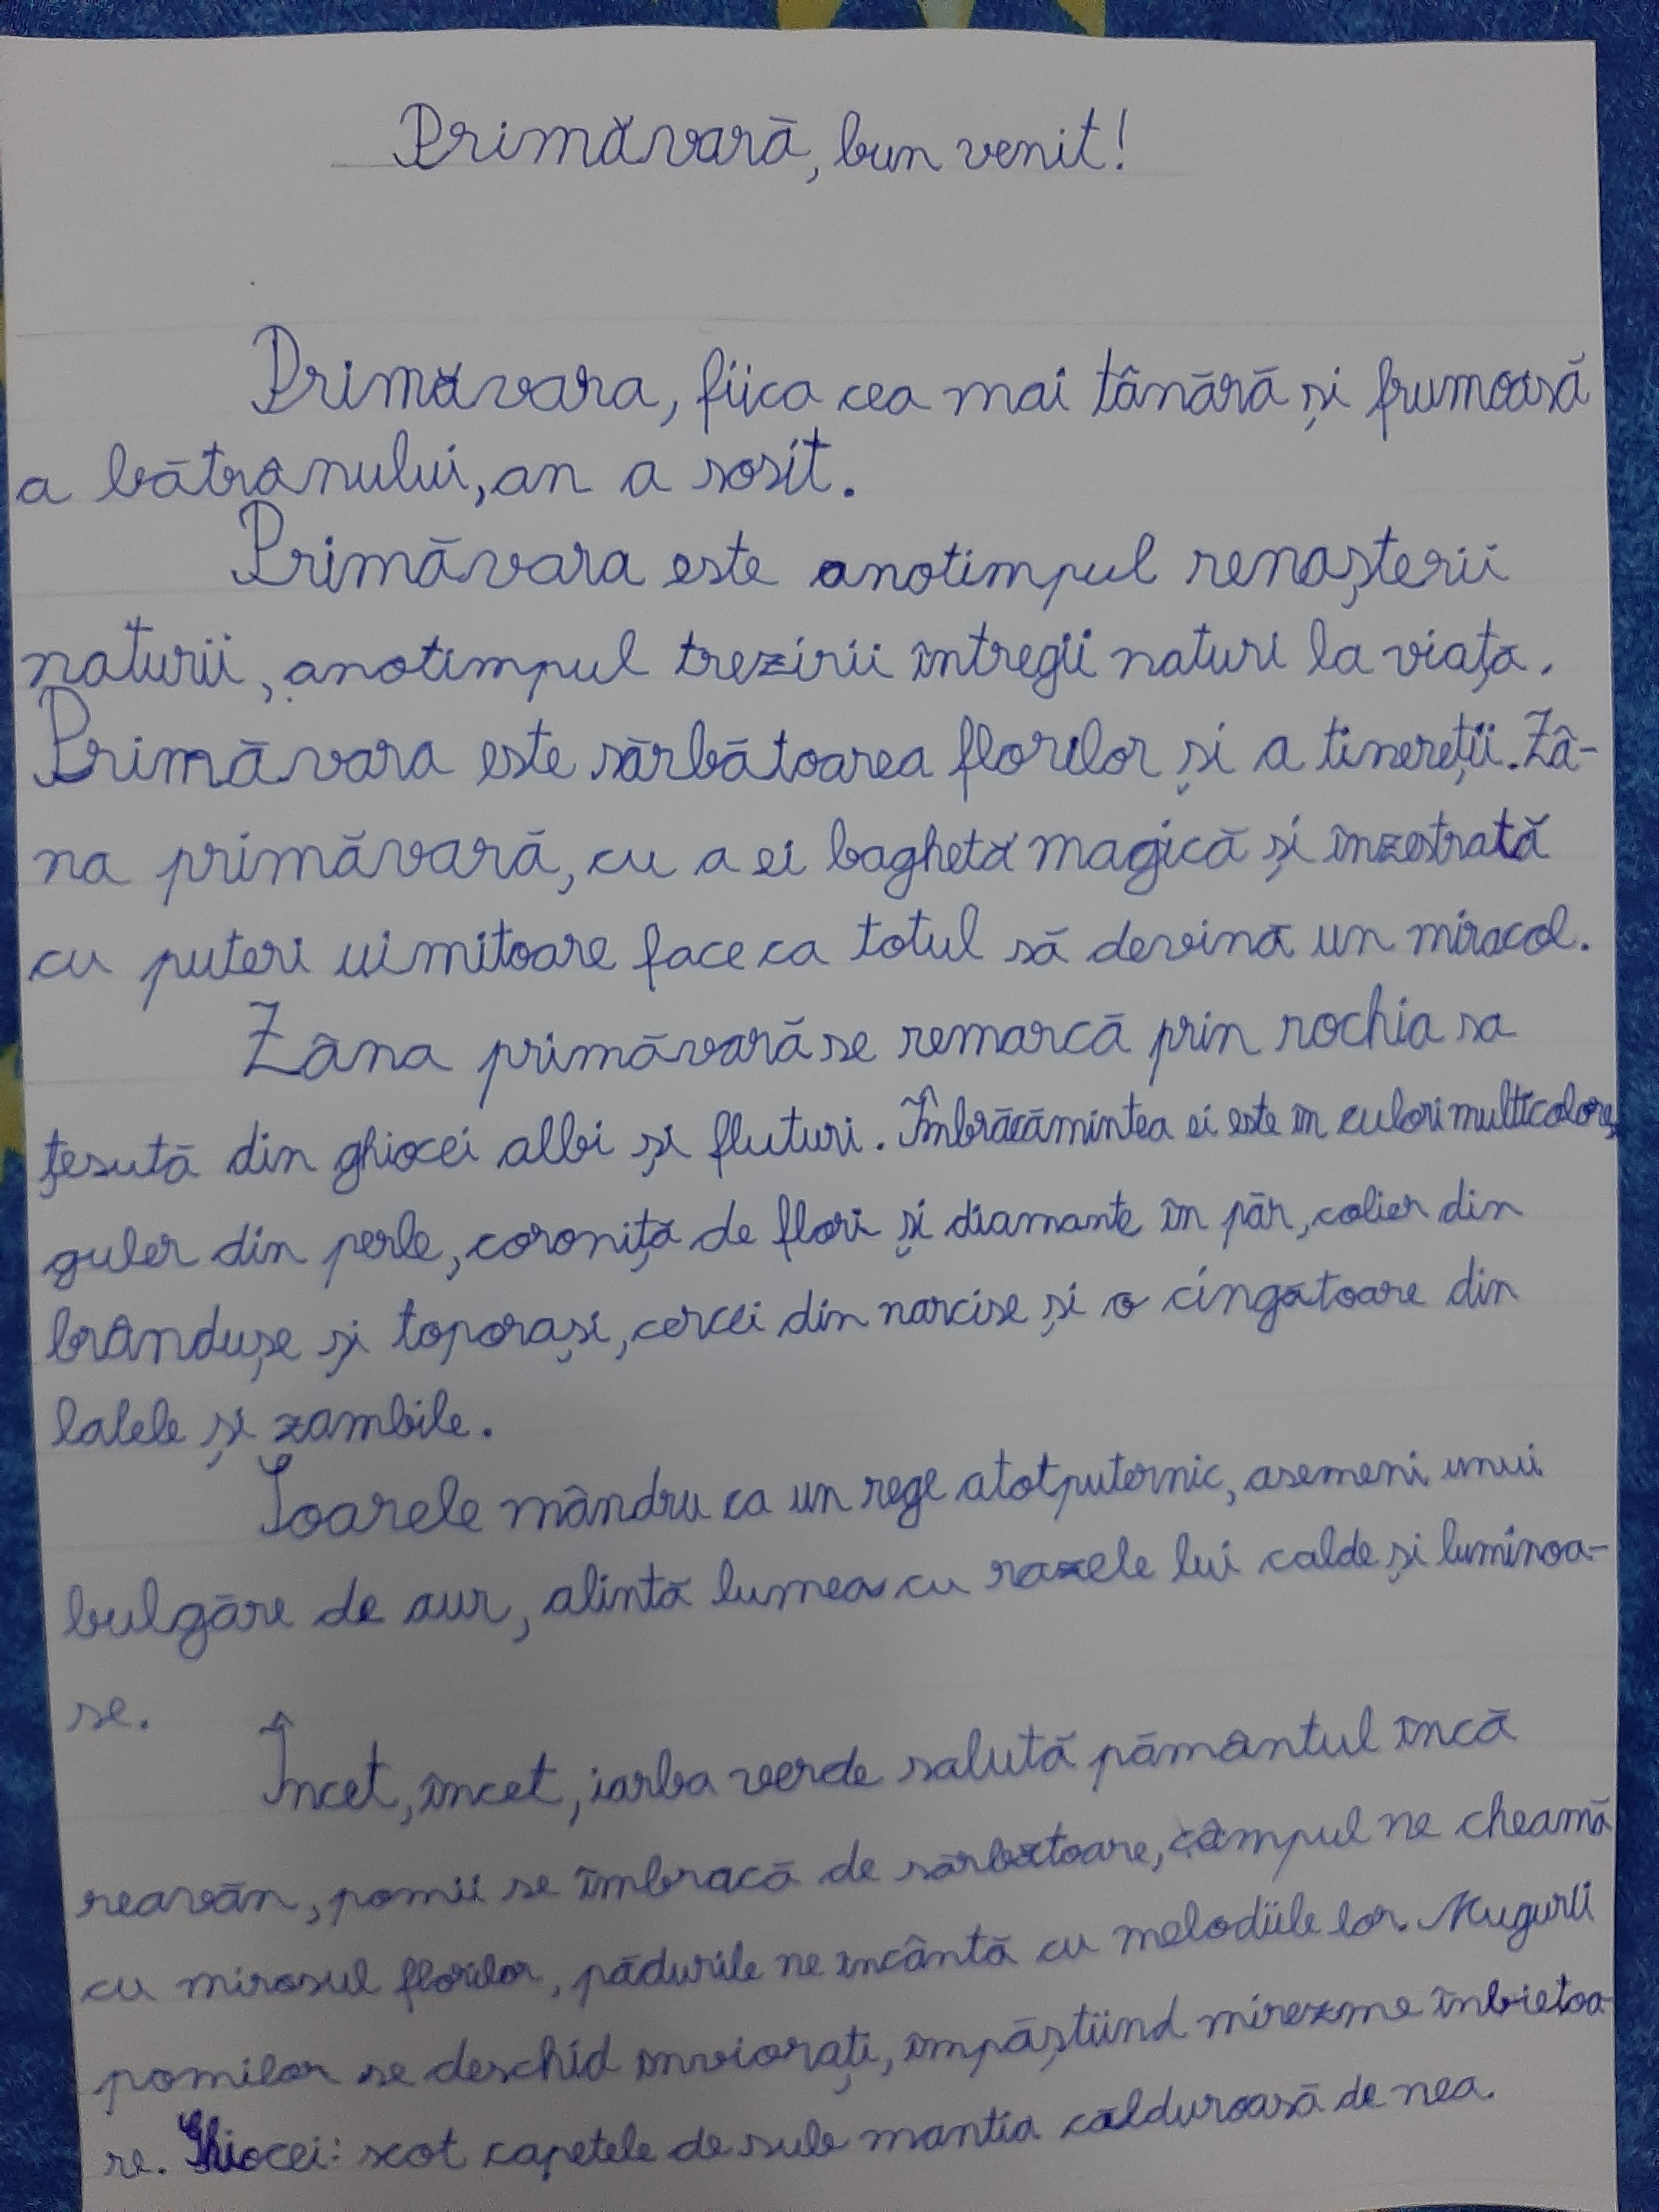 Primăvară, bun venit!
Primăvara, fiica cea mai tânără și frumoasă
a bătrânului, an a sosit.
Primăvara este anotimpul renașterii
naturii, anotimpul trezirii întregii naturi la viața.
Primăvara este sărbătoarea florilor și a tinereții. Zâ-
na primăvară, cu a ei bagheta magică și înzestrată
cu puteri uimitoare face ca totul să devină un miracol.
Zâna primăvară se remarcă prin rochia sa
țesută din ghiocei albi și fluturi. Îmbrăcămintea ei este în culori multicolore,
guler din perle, coroniță de flori și diamante în păr, colier din
brândușe și toporași, cercei din narcise și o cingătoare din
lalele și zambile.
Soarele mândru ca un rege atotputernic, asemeni unui
bulgăre de aur, alintă lumea cu razele lui calde și luminoa-
se.
Încet, încet, iarba verde salută pământul încă
reavăn, pomii se îmbracă de sărbătoare, câmpul ne cheamă
cu mirosul florilor, pădurile ne încântă cu melodiile lor. Mugurii
pomilor se deschid înviorați, împăștiind mirezme înbietoa-
re. Ghiocei: scot capetele de sub mantia călduroasă de nea.